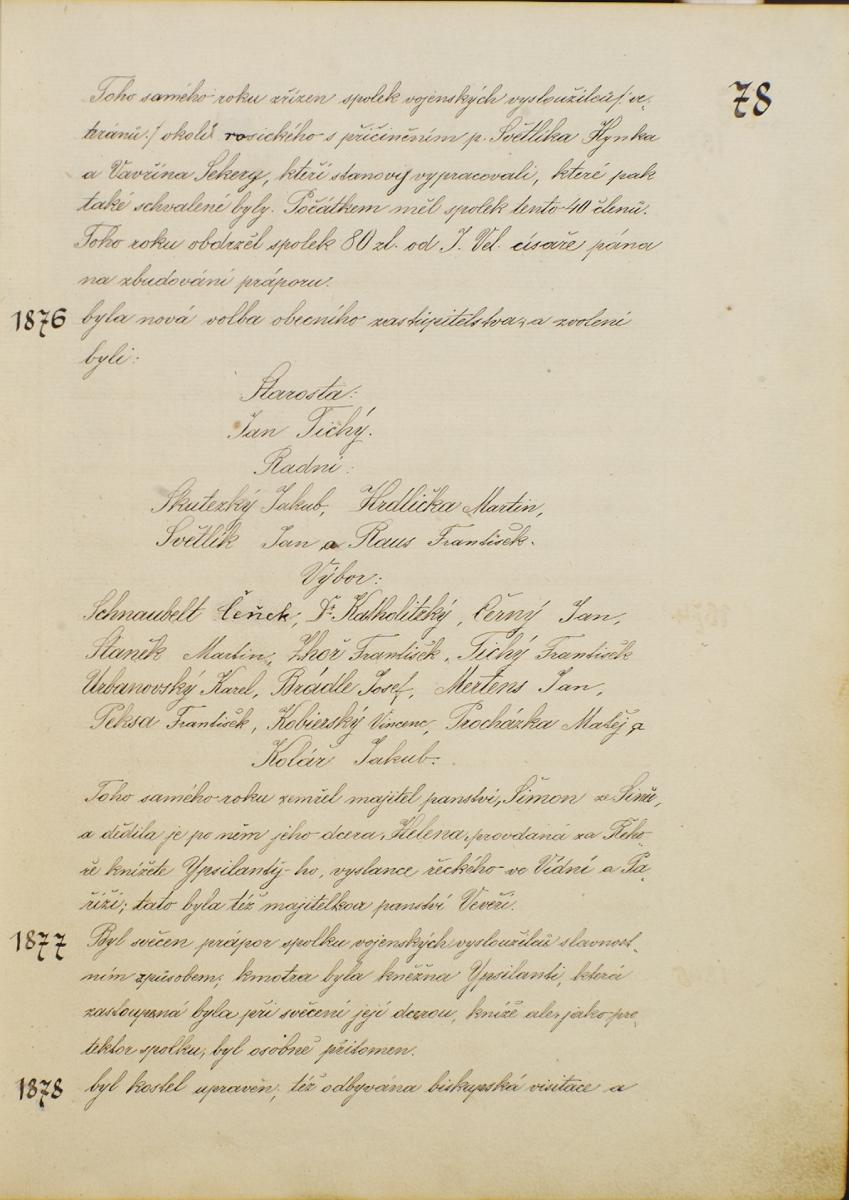 78
Toho samého roku zřízen spolek vojenských vysloužilců /: ve-
teránů :/ okolí rosického s přičiněním p. Světlíka Hynka
a Vavřína Sekery, kteří stanovy vypracovali, které pak
také schvalené byly. Počátkem měl spolek tento 40 členů.
Toho roku obdržel spolek 80 zl. od J. Vel. císaře pána
na zbudování práporu.
1876 byla nová volba obecního zastupitelstva, a zvoleni
byli:
Starosta:
Jan Tichý.
Radní:
Skutezký Jakub, Hrdlička Martin,
Světlík Jan a Raus František.
Výbor:
Schnaubelt Čeněk, Dr. Katholitzký, Černý Jan,
Staněk Martin, Zhoř František, Tichý František
Urbanovský Karel, Brádle Josef, Mertens Jan,
Peksa František, Kobierský Vincenc, Procházka Matěj a
Kolář Jakub.
Toho samého roku zemřel majitel panství, Šimon ze Sinů,
a dědila je po něm jeho dcera, Helena, provdaná za Řeho-
ře knížete Ypsilanty-ho, vyslance řeckého ve Vídni a Pa-
říži; tato byla též majitelkou panství Veveří.
1877 Byl svěcen prápor spolku vojenských vysloužilců slavnost-
ním způsobem; kmotra byla kněžna Ypsilanti, která
zastoupená byla při svěcení její dcerou, kníže ale, jako pro-
tektor spolku, byl osobně přítomen.
1878 byl kostel upraven, též odbyvána biskupská visitace a